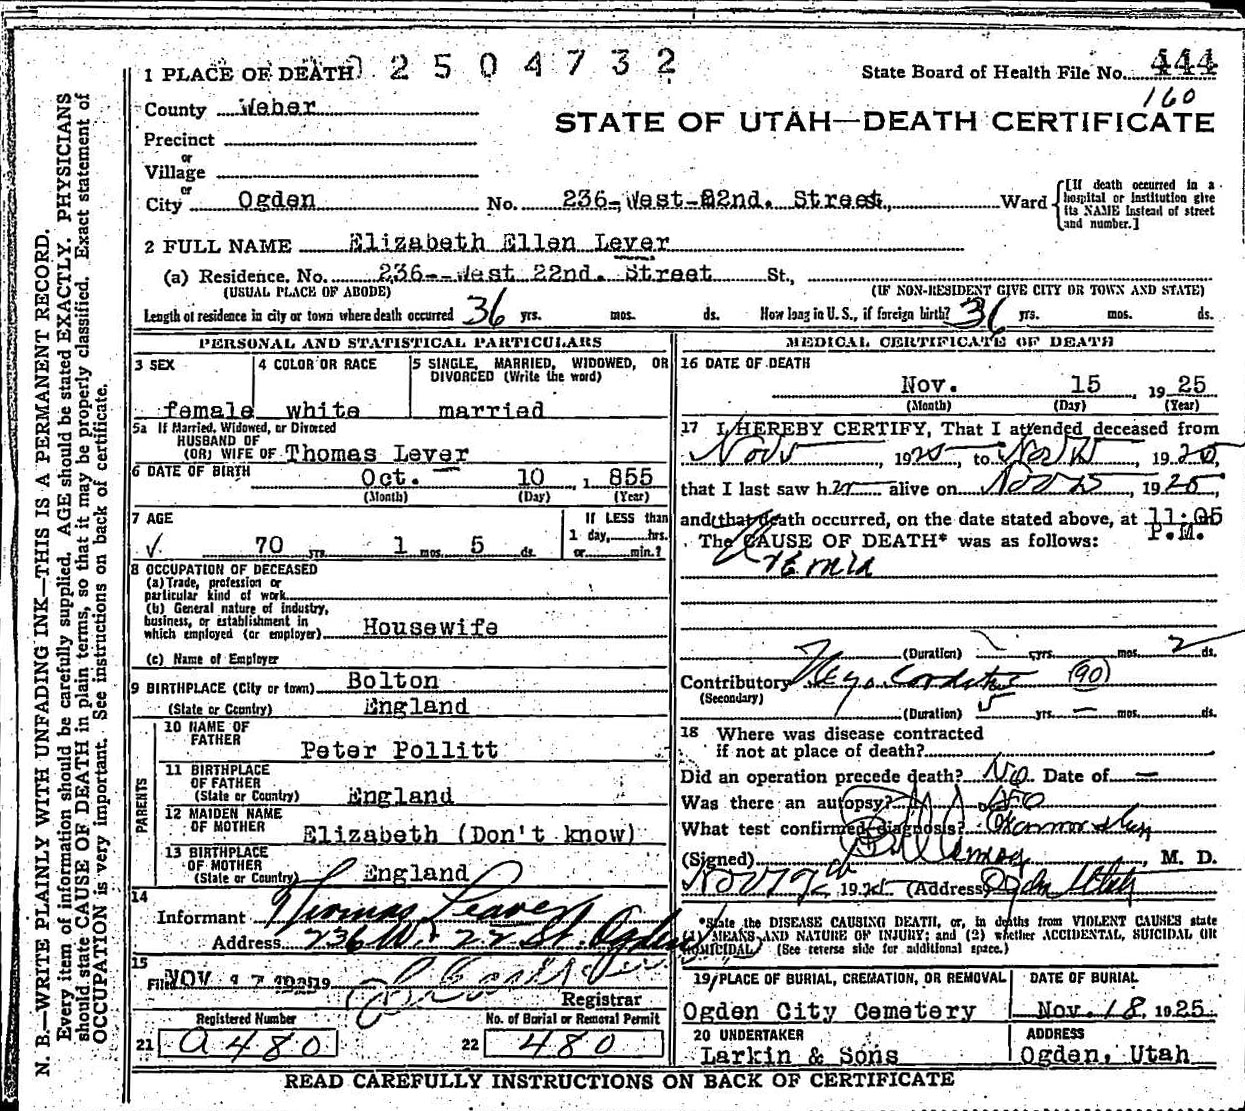 2504732
1 PLACE OF DEATH
State Board of Health File No. 444
160
County Weber
STATE OF UTAH—DEATH CERTIFICATE
Precinct
or
Village
or
City Ogden No. 236-West-22nd. Street, Ward
[If death occurred in a hospital or institution give its NAME instead of street and number.]
2 FULL NAME Elizabeth Ellen Lever
(a) Residence. No. 236--West 22nd. Street St.,
(USUAL PLACE OF ABODE) (IF NON-RESIDENT GIVE CITY OR TOWN AND STATE)
Length of residence in city or town where death occurred 36 yrs. mos. ds. How long in U. S., if foreign birth? 36 yrs. mos. ds.
PERSONAL AND STATISTICAL PARTICULARS
3 SEX female
4 COLOR OR RACE white
5 SINGLE, MARRIED, WIDOWED, OR DIVORCED (Write the word) married
5a If Married, Widowed, or Divorced
HUSBAND OF
(OR) WIFE OF Thomas Lever
6 DATE OF BIRTH Oct. 10, 1855
(Month) (Day) (Year)
7 AGE 70 yrs. 1 mos. 5 ds.
If LESS than
1 day, hrs.
or min.?
8 OCCUPATION OF DECEASED
(a) Trade, profession or
particular kind of work
(b) General nature of industry,
business, or establishment in
which employed (or employer) Housewife
(c) Name of Employer
9 BIRTHPLACE (City or town) Bolton
(State or Country) England
PARENTS
10 NAME OF FATHER Peter Pollitt
11 BIRTHPLACE OF FATHER
(State or Country) England
12 MAIDEN NAME OF MOTHER Elizabeth (Don't know)
13 BIRTHPLACE OF MOTHER
(State or Country) England
14
Informant Thomas Leaver
Address 236 W. 22 St. Ogden
15
Filed NOV 17 1925 19
Registrar
Registered Number
21 a 480
No. of Burial or Removal Permit
22 480
MEDICAL CERTIFICATE OF DEATH
16 DATE OF DEATH
Nov. 15 1925
(Month) (Day) (Year)
17 I HEREBY CERTIFY, That I attended deceased from
Nov , 1925, to Nov 15, 1925,
that I last saw her alive on Nov 15, 1925,
and that death occurred, on the date stated above, at 11:05 P.M.
The CAUSE OF DEATH* was as follows:
Uremia
(Duration) yrs. mos. 2 ds.
Contributory Myo Carditis (90)
(Secondary)
(Duration) 5 yrs. — mos. ds.
18 Where was disease contracted
if not at place of death?
Did an operation precede death? No Date of —
Was there an autopsy? No
What test confirmed diagnosis?
(Signed) , M. D.
Nov 17 1925 (Address) Ogden Utah
*State the DISEASE CAUSING DEATH, or, in deaths from VIOLENT CAUSES state
(1) MEANS AND NATURE OF INJURY; and (2) whether ACCIDENTAL, SUICIDAL OR
HOMICIDAL. (See reverse side for additional space.)
19 PLACE OF BURIAL, CREMATION, OR REMOVAL
Ogden City Cemetery
DATE OF BURIAL
Nov. 18, 1925.
20 UNDERTAKER
Larkin & Sons
ADDRESS
Ogden, Utah
READ CAREFULLY INSTRUCTIONS ON BACK OF CERTIFICATE
N. B.—WRITE PLAINLY WITH UNFADING INK—THIS IS A PERMANENT RECORD.
Every item of information should be carefully supplied. AGE should be stated EXACTLY. PHYSICIANS
should state CAUSE OF DEATH in plain terms, so that it may be properly classified. Exact statement of
OCCUPATION is very important. See instructions on back of certificate.